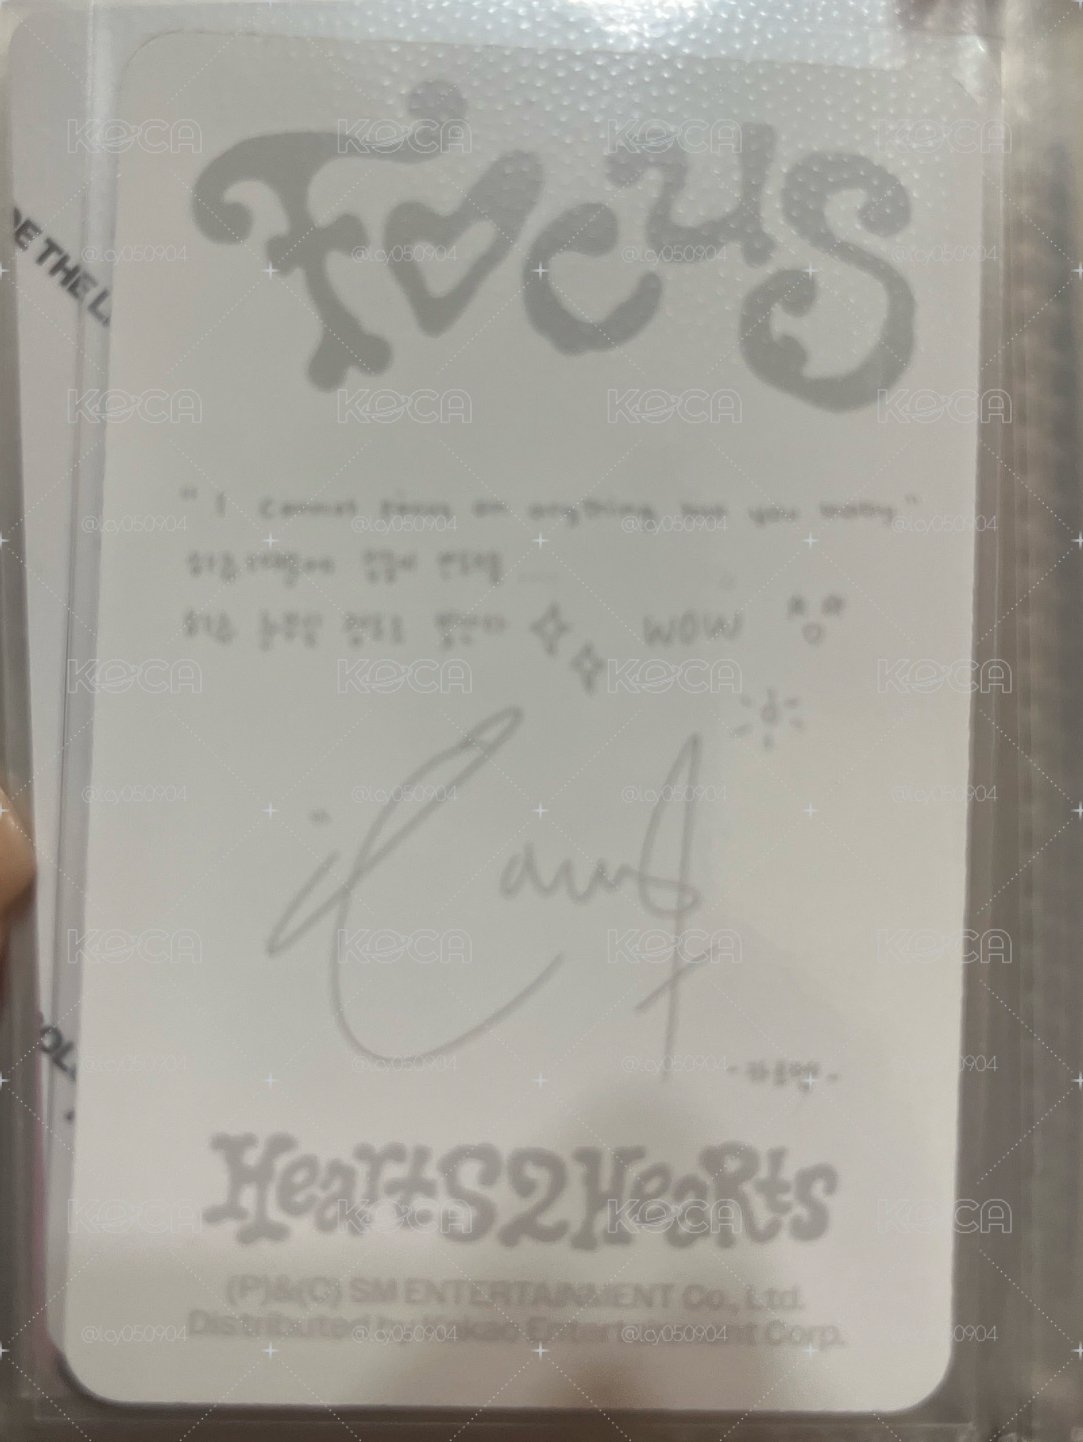 FOCUS
DE THE L
" I cannot focus on anything but you baby "
하츄
하츄 눈부신
WOW
Carmen
- 카르멘 -
OL
Hearts2Hearts
(P)&(C) SM ENTERTAINMENT Co., Ltd.
Distributed by Kakao Entertainment Corp.
KOCA
@lay050904